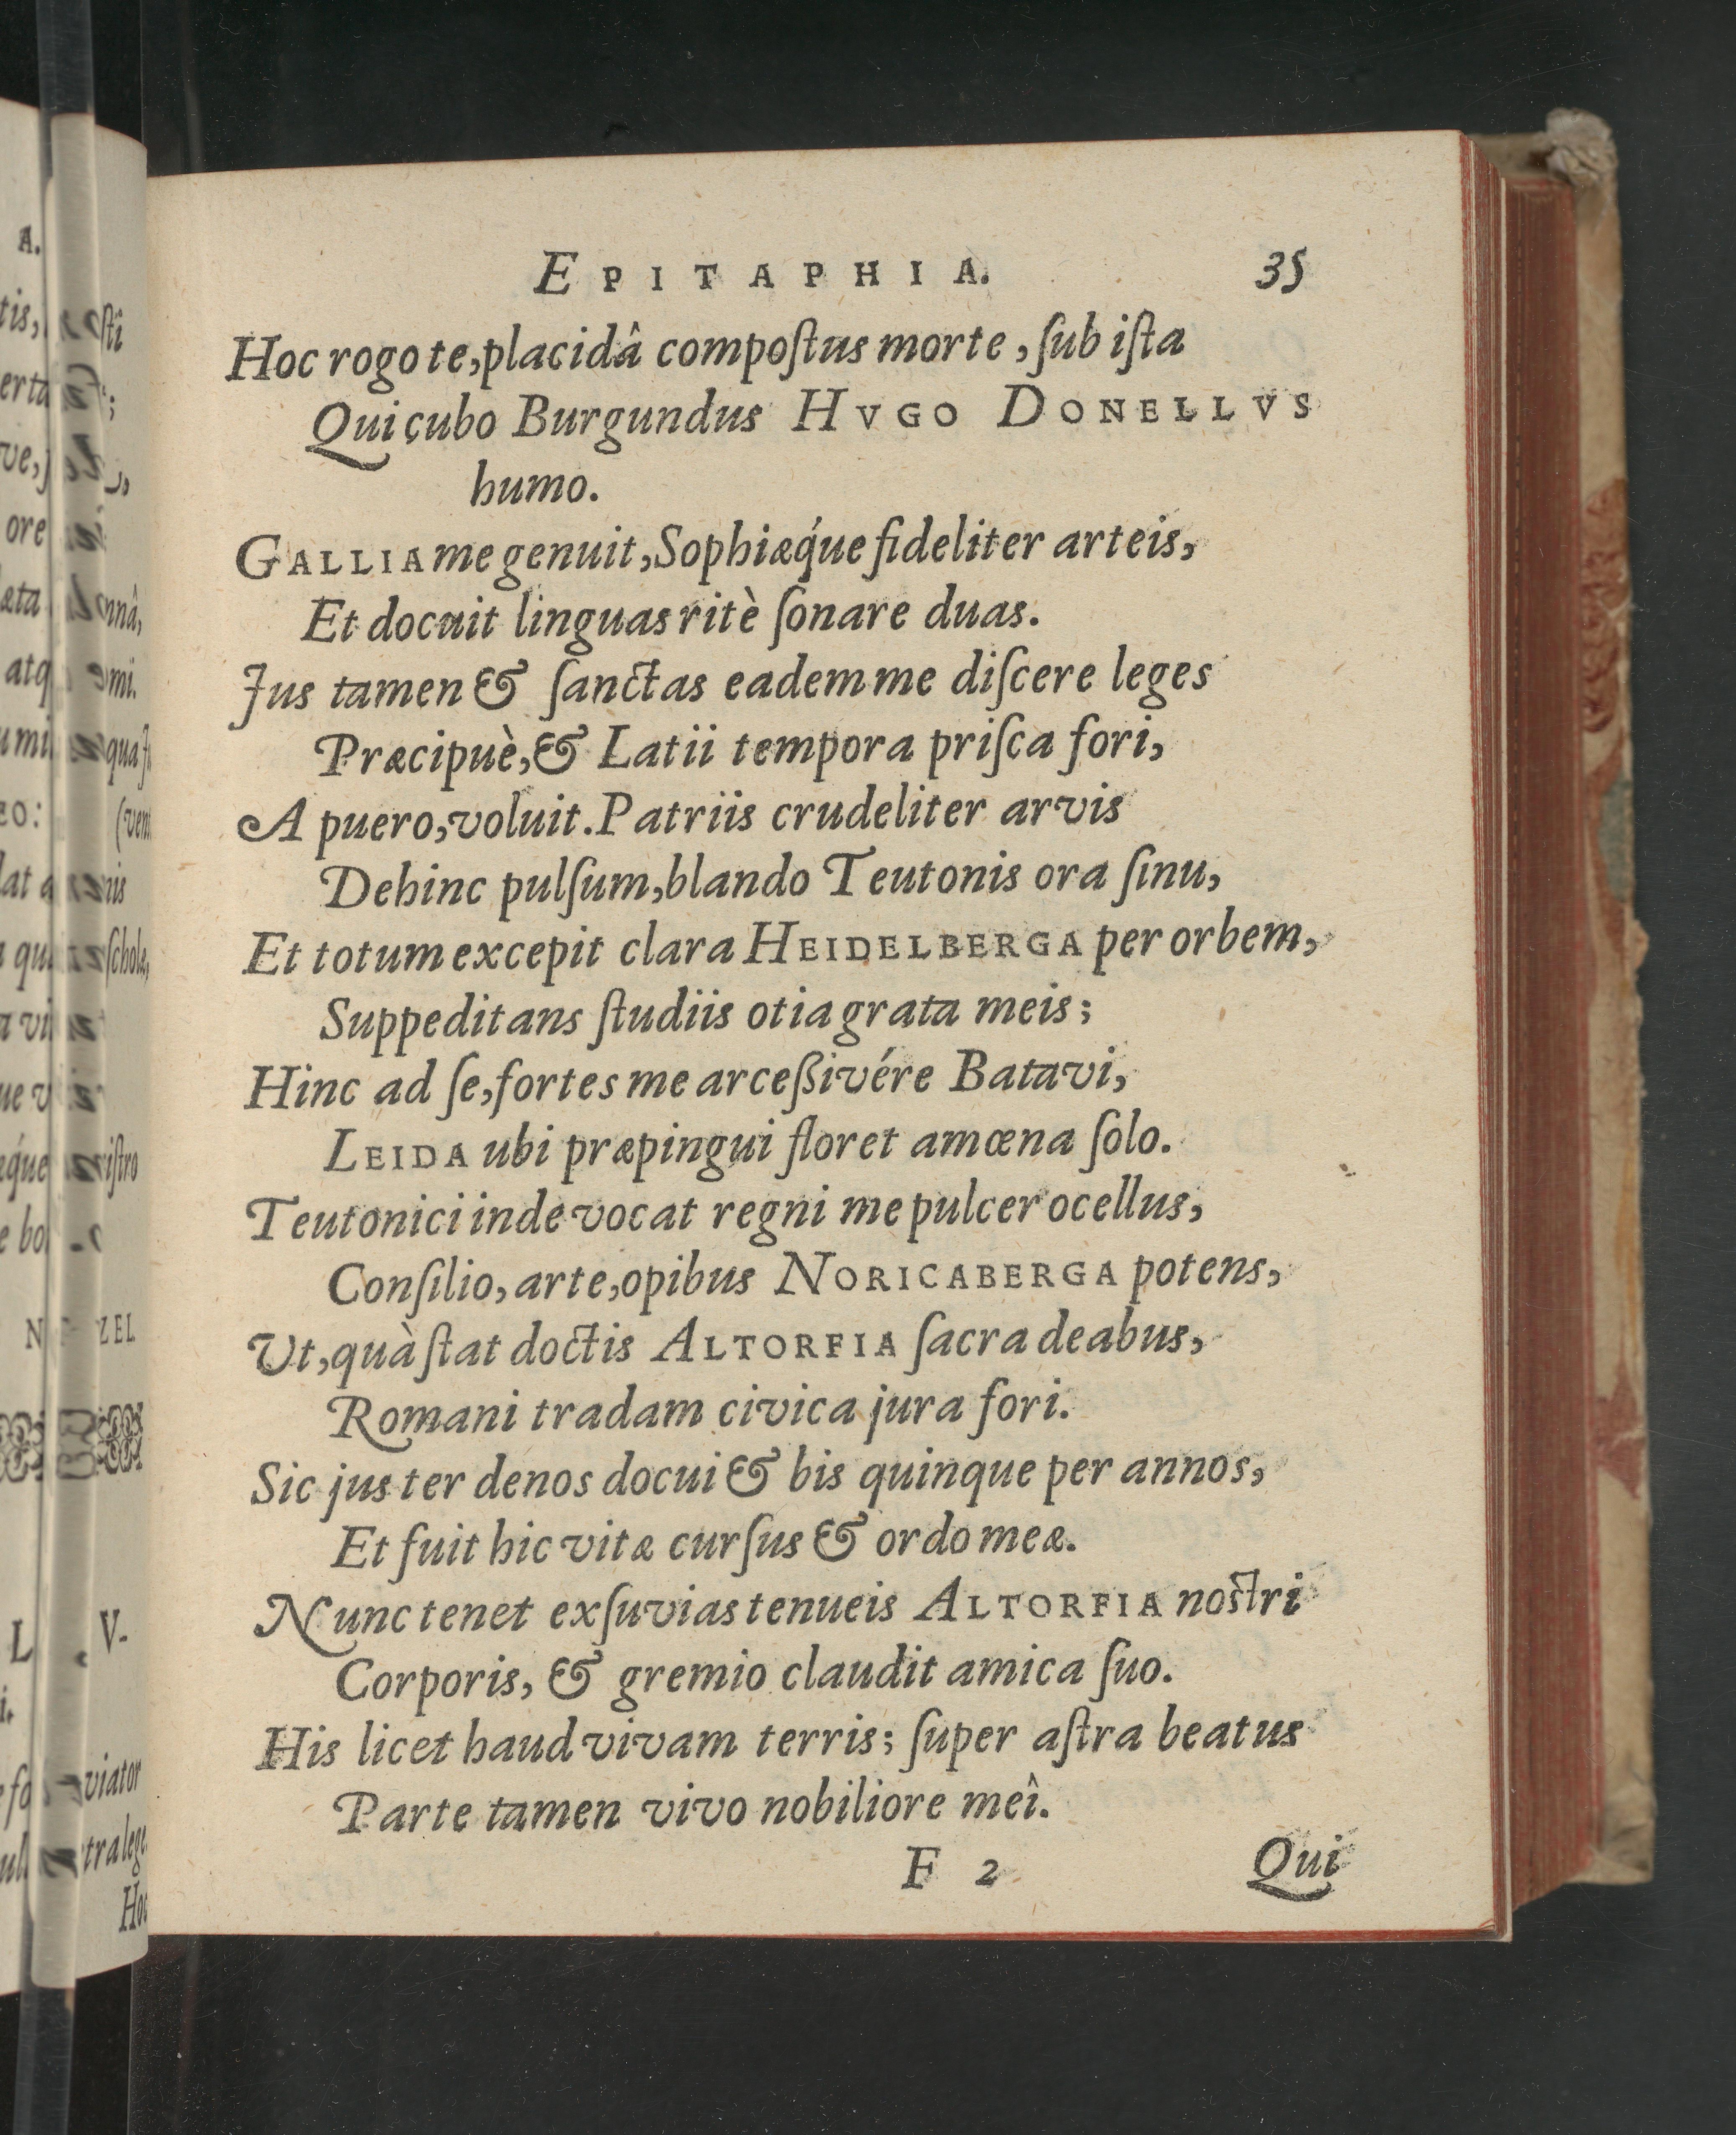 EPITAPHIA. 35
Hoc rogo te, placidâ compoſtus morte, ſub iſta
Qui cubo Burgundus HVGO DONELLVS
humo.
GALLIA me genuit, Sophiæq́ue fideliter arteis,
Et docuit linguas ritè ſonare duas.
Jus tamen & ſanctas eadem me diſcere leges
Præcipuè, & Latii tempora priſca fori,
A puero, voluit. Patriis crudeliter arvis
Dehinc pulſum, blando Teutonis ora ſinu,
Et totum excepit clara HEIDELBERGA per orbem,
Suppeditans ſtudiis otia grata meis;
Hinc ad ſe, fortes me arceßivére Batavi,
LEIDA ubi præpingui floret amœna ſolo.
Teutonici inde vocat regni me pulcer ocellus,
Conſilio, arte, opibus NORICABERGA potens,
Ut, quà ſtat doctis ALTORFIA ſacra deabus,
Romani tradam civica jura fori.
Sic jus ter denos docui & bis quinque per annos,
Et fuit hic vitæ curſus & ordo meæ.
Nunc tenet exſuvias tenueis ALTORFIA noſtri
Corporis, & gremio claudit amica ſuo.
His licet haud vivam terris; ſuper aſtra beatus
Parte tamen vivo nobiliore meî.
F 2 Qui